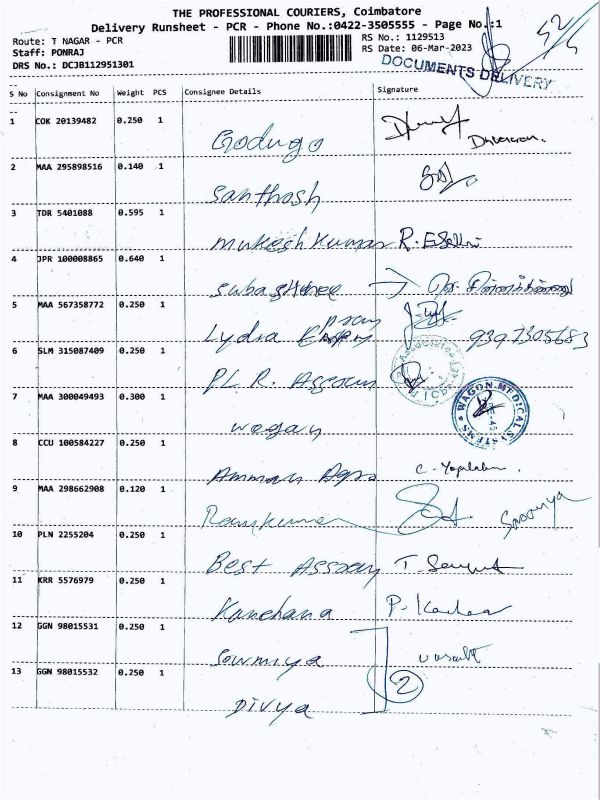 THE PROFESSIONAL COURIERS, Coimbatore
Delivery Runsheet - PCR - Phone No.:0422-3505555 - Page No.:1
Route: T NAGAR - PCR
Staff: PONRAJ
DRS No.: DCJB112951301
RS No.: 1129513
RS Date: 06-Mar-2023
52/5
DOCUMENTS DELIVERY
S No Consignment No Weight PCS Consignee Details Signature
1 COK 20139482 0.250 1
Godugo
2 MAA 295898516 0.140 1
Santhosh
3 TDR 5401088 0.595 1
Mukesh Kumar R.
4 JPR 100008865 0.640 1
Subashree
5 MAA 567358772 0.250 1
Lydia 9397305683
6 SLM 315087409 0.250 1
P.L.R. Assoun
7 MAA 300049493 0.300 1
WAGON MEDICAL SYSTEMS
wogan
8 CCU 100584227 0.250 1
Amman Agro C.
9 MAA 298662908 0.120 1
Ramkumar Saranya
10 PLN 2255204 0.250 1
Best T.
11 KRR 5576979 0.250 1
Kanchana P.
12 GGN 98015531 0.250 1
Sowmiya
13 GGN 98015532 0.250 1
2
Divya